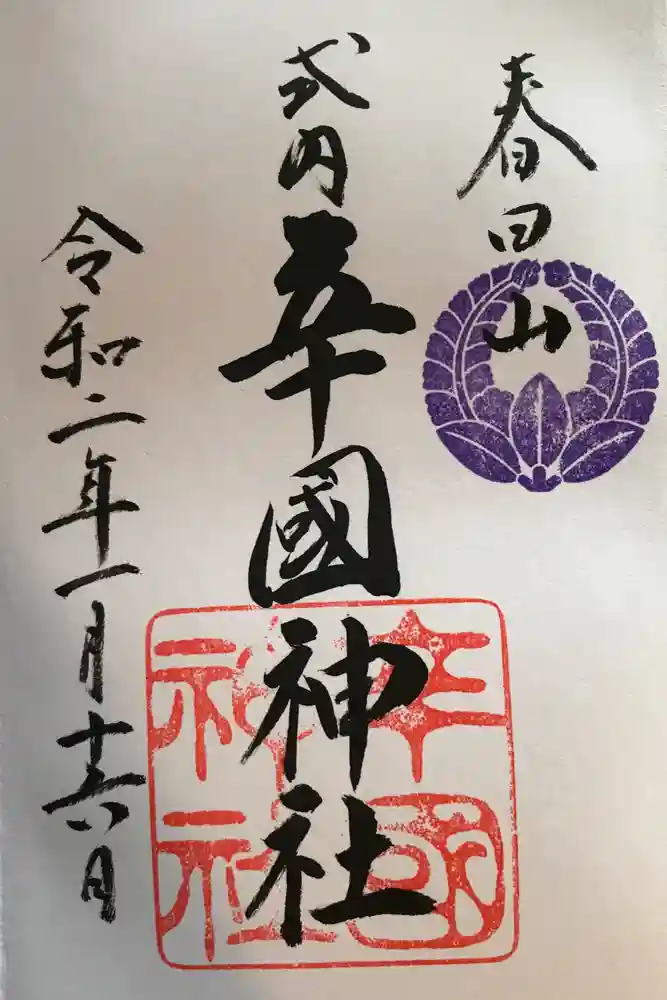 春日山
式内 辛國神社
令和二年一月十六日
辛國神社